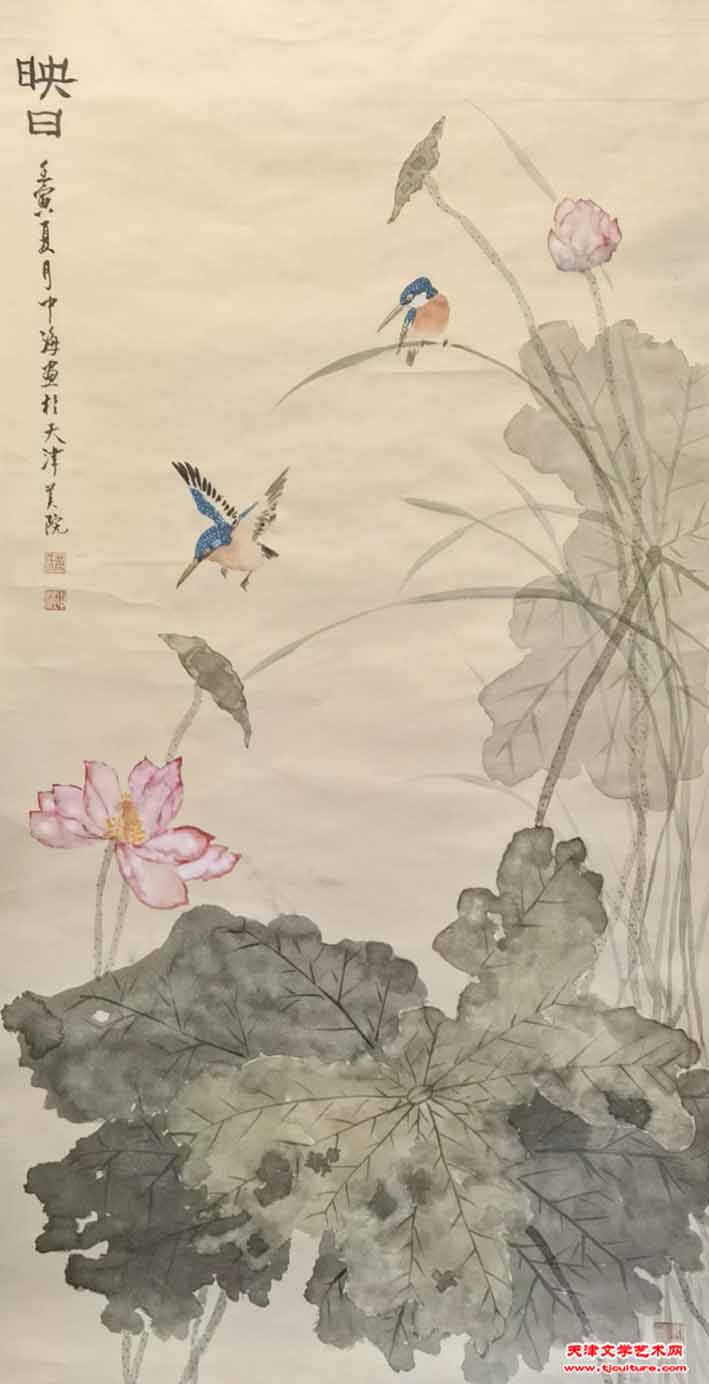 映日
壬寅夏月中海画於天津美院
天津文学艺术网
www.tjculture.com